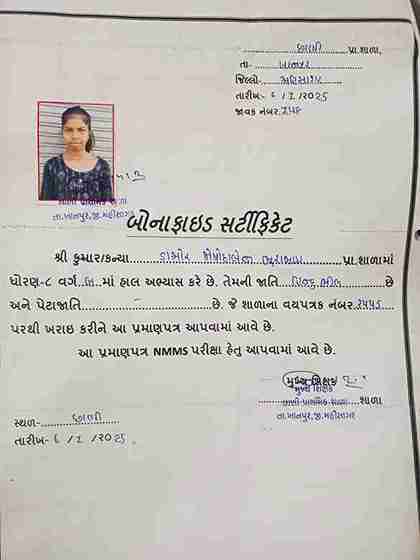 છાણી પ્રા.શાળા,
તા- ખાનપુર
જિલ્લો- મહિસાગર
તારીખ- ૬ / 1 / 2025
જાવક નંબર.
તા.ખાનપુર,જી.મહીસાગર
બોનાફાઇડ સર્ટીફિકેટ
શ્રી કુમાર/કન્યા ડામોર પ્રા.શાળામાં
ધોરણ-૮ વર્ગ માં હાલ અભ્યાસ કરે છે. તેમની જાતિ હિન્દુ ભીલ છે
અને પેટાજાતિ - છે. જે શાળાના વયપત્રક નંબર ૨૫૫૬
પરથી ખરાઇ કરીને આ પ્રમાણપત્ર આપવામાં આવે છે.
આ પ્રમાણપત્ર NMMS પરીક્ષા હેતુ આપવામાં આવે છે.
મુખ્ય શિક્ષક
મુખ્ય શિક્ષક
પ્રાથમિક શાળા શાળા
તા.ખાનપુર,જી.મહીસાગર
સ્થળ- છાણી
તારીખ- ૬ / 1 / 2025